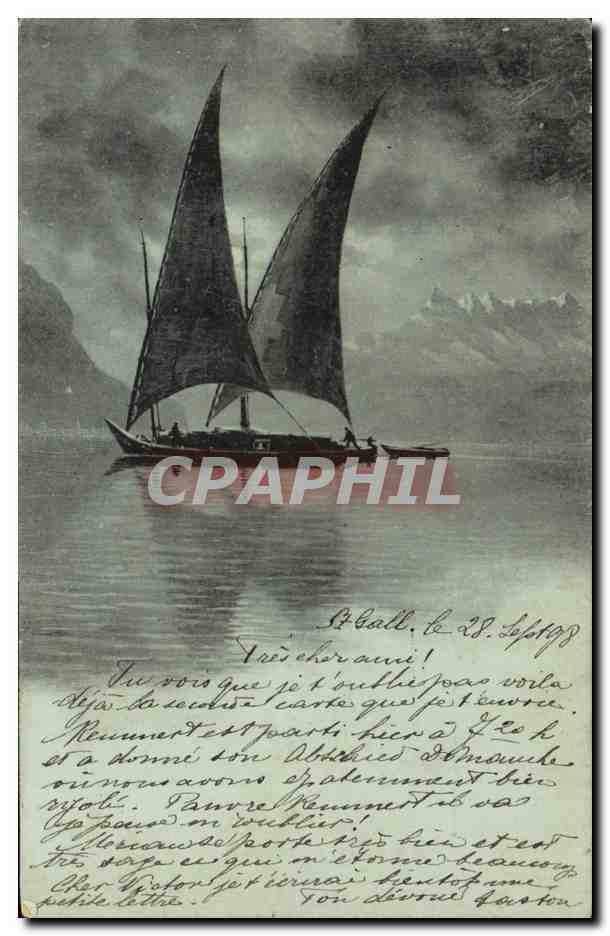 CPAPHIL
St Gall. le 28. Sept 98
Très cher ami!
Tu vois que je t'oublie pas voila
déjà la seconde carte que je t'envoie.
Kemmert est parti hier à 7 20 h
et a donné son Abschied Dimanche
où nous avons épatemment bien
rigolé. Pauvre Kemmert il va
je pense m'oublier!
se porte très bien et est
très sage ce qui m'étonne beaucoup
Cher Victor je t'écrirai bientôt une
petite lettre. Ton dévoué Gaston